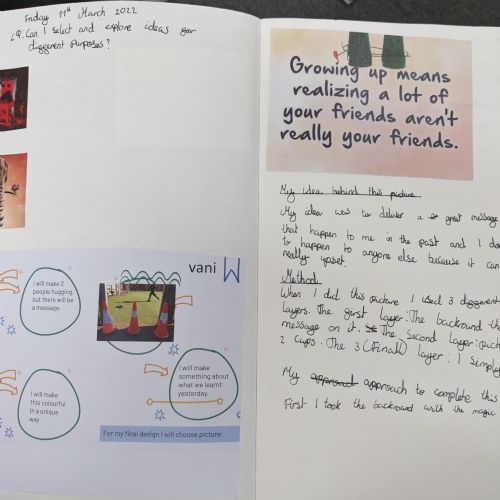 Friday 11th March 2022
LQ: Can I select and explore ideas for
different purposes?
vani
I will make 2
people hugging,
but there will be
a message.
I will make
something about
what we learnt
yesterday.
I will make
this colourful
in a unique
way
For my final design I will choose picture:
Growing up means
realizing a lot of
your friends aren't
really your friends.
My idea behind this picture
My idea was to deliver a great message
that happen to me in the past and I
to happen to anyone else because it can
really upset.
Method
When I did this picture I used 3 different
layers. The first layer: The backround
message on it. The Second layer:
2 cups. The 3 (Final) layer: I simply
My approach to complete this
First I took the backround with the magic